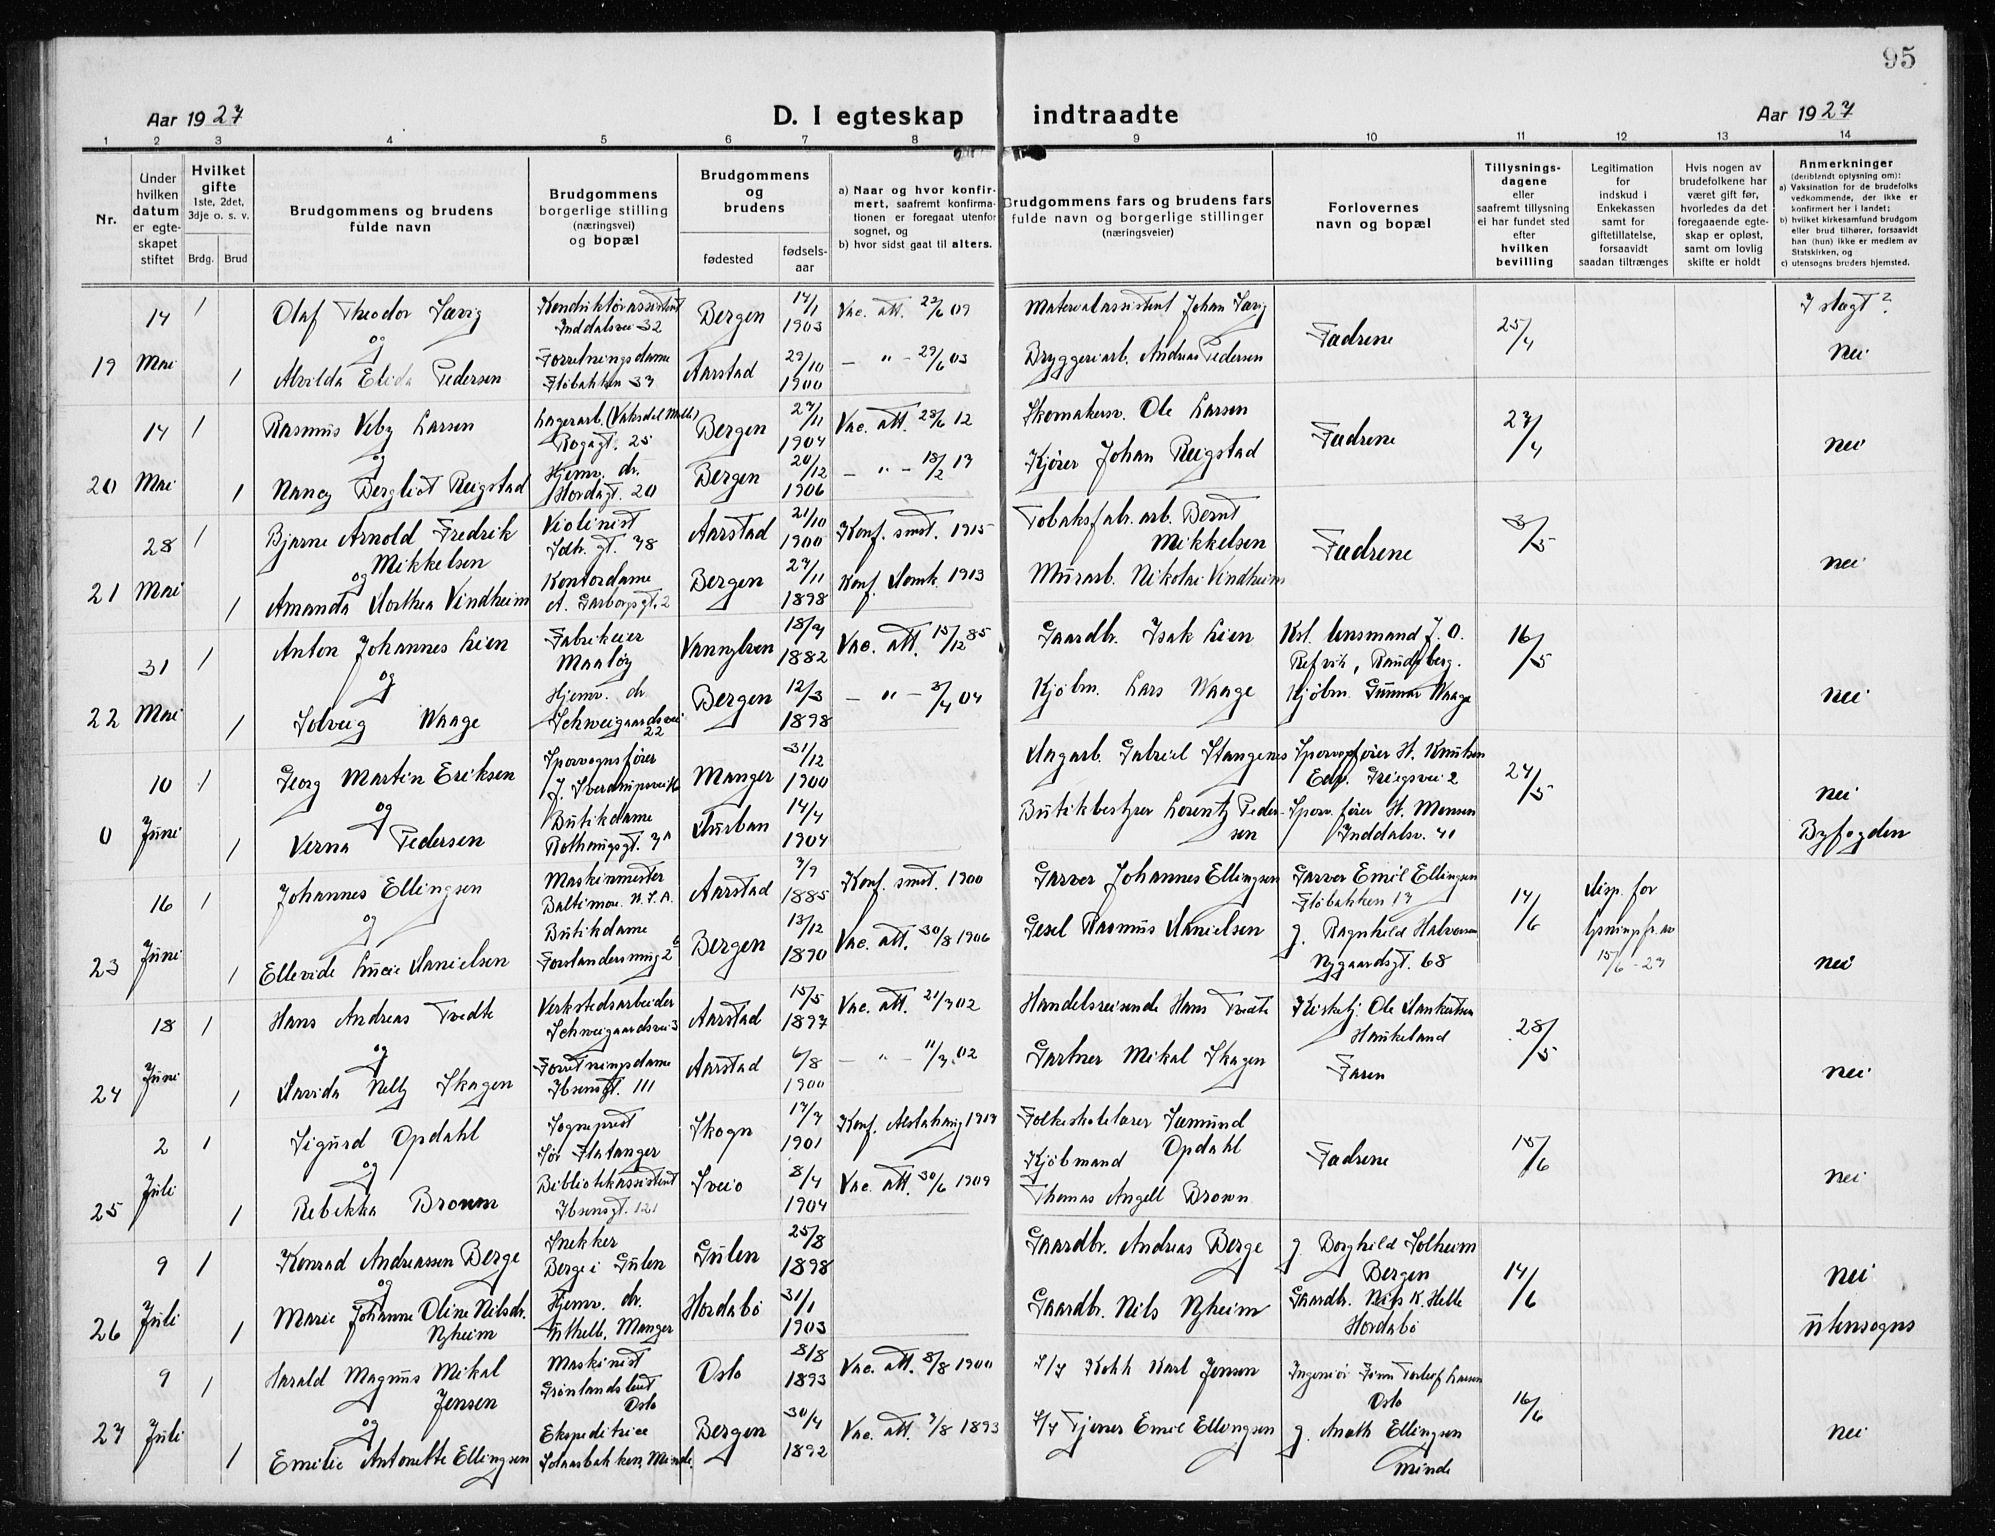 95
Aar 1927
D. I egteskap indtraadte
Aar 1927
1 2 3 4 5 6 7 8 9 10 11 12 13 14
Nr.
Under hvilken datum er egteskapet stiftet
Hvilket gifte 1ste, 2det, 3dje o. s. v.
Brdg. Brud
Brudgommens og brudens fulde navn
Brudgommens borgerlige stilling (næringsvei) og bopæl
Brudgommens og brudens
fødested
fødsels-aar
a) Naar og hvor konfirmert, saafremt konfirmationen er foregaat utenfor sognet, og
b) hvor sidst gaat til alters.
Brudgommens fars og brudens fars fulde navn og borgerlige stillinger (næringsveier)
Forlovernes navn og bopæl
Tillysningsdagene eller saafremt tillysning ei har fundet sted efter hvilken bevilling
Legitimation for indskud i Enkekassen samt for giftetillatelse, forsaavidt saadan tiltrænges
Hvis nogen av brudefolkene har været gift før, hvorledes da det foregaaende egteskap er opløst, samt om lovlig skifte er holdt
Anmerkninger (deriblendt oplysning om):
a) Vaksination for de brudefolks vedkommende, der ikke er konfirmert her i landet;
b) hvilket kirkesamfund brudgom eller brud tilhører, forsaavidt han (hun) ikke er medlem av Statskirken, og
c) utensogns bruders hjemsted.
19 14 Mai 1 Olaf Theodor Særvig Konduktørassistent Inddalsvei 32 Bergen 14/1 1903 Vac. att. 22/6 09 Materialassistent Johan Særvig Fadrene 25/4 I slegt?
og
1 Alvilda Elida Pedersen Forretningsdame Fløbakken 37 Aarstad 29/10 1900 — " — 29/6 03 Bryggeriarb. Andreas Pedersen nei
20 14 Mai 1 Rasmus Veby Larsen Lagerarb. (Vaksdal Mølle) Rogagt. 25 Bergen 27/11 1904 Vac. att. 28/6 12 Skomakersv. Ole Larsen Fadrene 27/4 nei
og
1 Nancy Bergliot Reigstad Hjemv. dr. Hordagt. 20 Bergen 20/12 1906 — " — 18/2 13 Kjører Johan Reigstad
21 28 Mai 1 Bjarne Arnold Fredrik Mikkelsen Violinist Idr. gt. 38 Aarstad 21/10 1900 Konf. smst. 1915 Tobaksfabr. arb. Bernt Mikkelsen Fadrene 3/5 nei
og
1 Amanda Dorthea Vindheim Kontordame A. Garborgsgt. 2 Bergen 27/11 1898 Konf. Domk. 1913 Murarb. Nikolai Vindheim
22 31 Mai 1 Anton Johannes Lien Fabrikeier Maaløy Vannylven 18/7 1882 Vac. att. 15/12 85 Gaardbr. Isak Lien Kst. lensmand J. O. Refvik, Raudeberg. 16/5 nei
og
1 Solveig Waage Hjemv. dr. Schweigaardsvei 22 Bergen 12/3 1898 — " — 3/4 04 Kjøbm. Lars Waage Kjøbm. Gunnar Waage
0 10 Juni 1 Georg Martin Eriksen Sporvognsfører J. Sverdrupsvei Manger 31/12 1900 Dagarb. Gabriel Stangenes Sporvognfører H. Knutsen Edv. Griegsvei 2 24/5 nei
og
1 Verna Pedersen Butikdame Rothaugsgt. 3A Durban 14/4 1904 Butikbestyrer Lorentz Pedersen Sporv. fører H. Monsen Inddalsv. 41 Byfogden
23 16 Juni 1 Johannes Ellingsen Maskinmester Baltimore U.S.A. Aarstad 7/9 1885 Konf. smst. 1900 Garver Johannes Ellingsen Garver Emil Ellingsen Fløbakken 17 14/6 Disp. for lysningsfr. av 15/6-27
og
1 Ellevide Lucie Danielsen Butikdame Forstandersmug 2b Bergen 13/12 1890 Vac. att. 30/8 1906 Gesel Rasmus Danielsen g. Ragnhild Halvorsen Nygaardsgt. 68 nei
24 18 Juni 1 Hans Andreas Tvedte Verkstedsarbeider Schweigaardsvei 3 Aarstad 15/5 1897 Vac. att. 21/7 02 Handelsreisende Hans Tvedte Kirketj. Ole Dankertsen Haukeland 28/5 nei
og
1 Davida Nelly Skagen Forretningsdame Ibsensgt. 111 Aarstad 6/8 1900 — " — 11/7. 02 Gartner Mikal Skagen Faren
25 2 Juli 1 Sigurd Opdahl Sogneprest Sør Flatanger Skogn 17/7 1901 Konf. Alstahaug 1917 Folkeskolelærer Sæmund Opdahl Fadrene 15/6 nei
og
1 Rebekka Brown Bibliotekassistent Ibsensgt. 121 Sveio 8/4 1904 Vac. att. 30/6 1909 Kjøbmand Thomas Angell Brown
26 9 Juli 1 Konrad Andreassen Berge Snekker Berge i Gulen Gulen 25/8 1898 Gaardbr. Andreas Berge g. Borghild Solheim Bergen 14/6 nei
og
1 Marie Johanne Oline Nilsdr. Nyheim Hjemv. dr. Uthelle, Manger Hordabø 31/1 1903 Gaardbr. Nils Nyheim Gaardbr. Nils K. Helle Hordabø utensogns
27 9 Juli 1 Harald Magnus Mikal Jensen Maskinist Grønlandsleret Oslo Oslo 8/8 1893 Vac. att. 8/8 1900 Kokk Karl Jensen Ingeniør Finn Torleif Larsen Oslo 16/6 nei
og
1 Emilie Antonette Ellingsen Ekspeditrice Solaasbakken, Minde. Bergen 30/4 1892 Vac. att. 7/8 1893 Tjener Emil Ellingsen g. Anath Ellingsen Minde